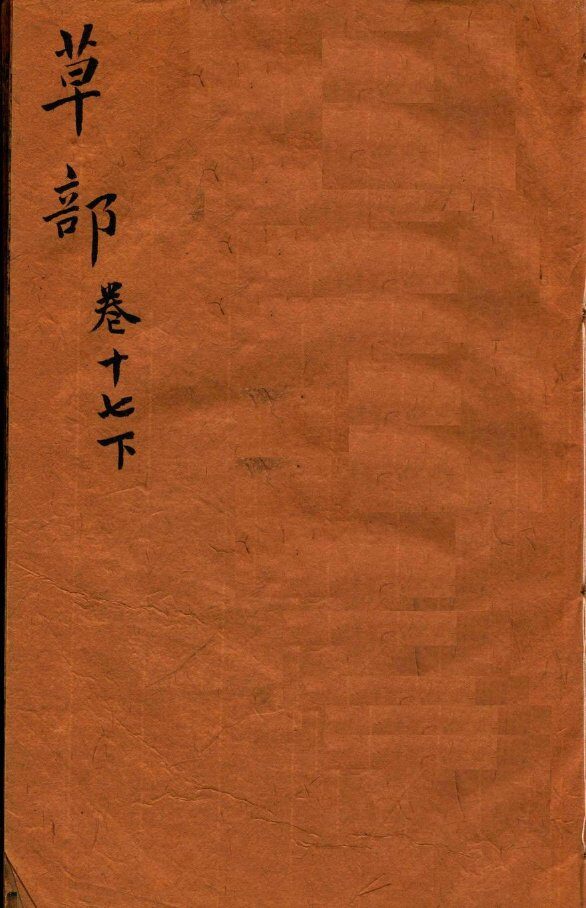 草部卷十七下